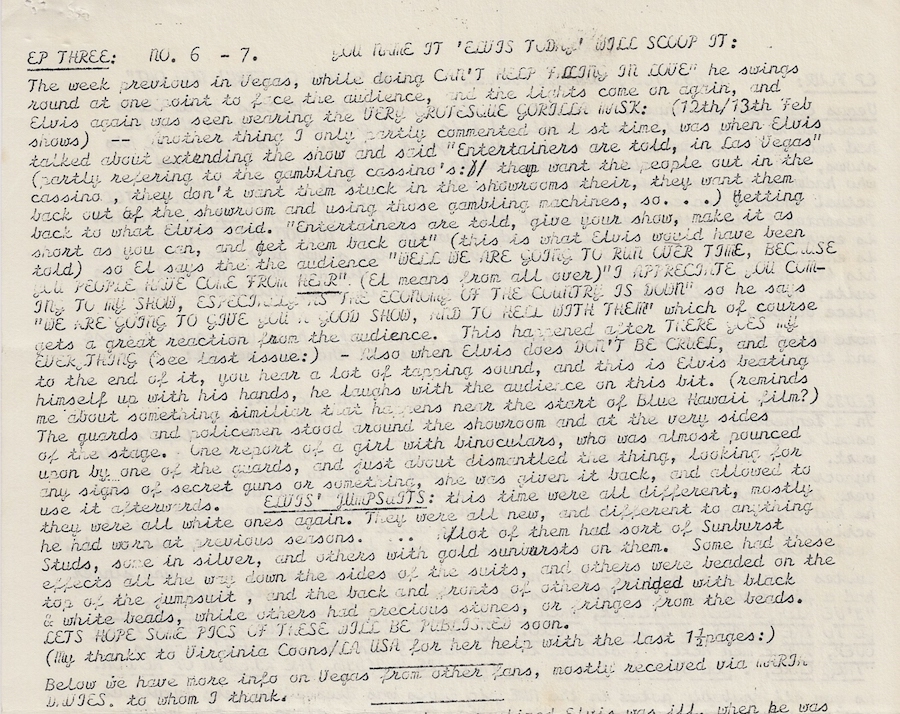 EP THREE: NO. 6 - 7. YOU NAME IT 'ELVIS TODAY' WILL SCOOP IT:
The week previous in Vegas, while doing CAN'T HELP FALLING IN LOVE" he swings
round at one point to face the audience, and the lights come on again, and
Elvis again was seen wearing the VERY GROTESQUE GORILLA MASK: (12th/13th Feb
shows) -- Another thing I only partly commented on l st time, was when Elvis
talked about extending the show and said "Entertainers are told, in Las Vegas"
(partly refering to the gambling cassino's:// they want the people out in the
cassino , they don't want them stuck in the showrooms their, they want them
back out of the showroom and using those gambling machines, so. . .) Getting
back to what Elvis said. "Entertainers are told, give your show, make it as
short as you can, and get them back out" (this is what Elvis would have been
told) so El says the the audience "WELL WE ARE GOING TO RUN OVER TIME, BECAUSE
YOU PEOPLE HAVE COME FROM HEIR" (El means from all over)"I APPRECIATE YOU COM-
ING TO MY SHOW, ESPECIALLY AS THE ECONOMY OF THE COUNTRY IS DOWN" so he says
"WE ARE GOING TO GIVE YOU A GOOD SHOW, AND TO HELL WITH THEM" which of course
gets a great reaction from the audience. This happened after THERE GOES MY
EVERYTHING (see last issue:) - Also when Elvis does DON'T BE CRUEL, and gets
to the end of it, you hear a lot of tapping sound, and this is Elvis beating
himself up with his hands, he laughs with the audience on this bit. (reminds
me about something similiar that happens near the start of Blue Hawaii film?)
The guards and policemen stood around the showroom and at the very sides
of the stage. One report of a girl with binoculars, who was almost pounced
upon by one of the guards, and just about dismantled the thing, looking for
any signs of secret guns or something, she was given it back, and allowed to
use it afterwards. ELVIS' JUMPSUITS: this time were all different, mostly
they were all white ones again. They were all new, and different to anything
he had worn at previous seasons. ... A lot of them had sort of Sunburst
Studs, some in silver, and others with gold sunbursts on them. Some had these
effects all the way down the sides of the suits, and others were beaded on the
top of the jumpsuit , and the back and fronts of others fringed with black
& white beads, while others had precious stones, or fringes from the beads.
LETS HOPE SOME PICS OF THESE WILL BE PUBLISHED soon.
(My thankx to Virginia Coons/LA USA for her help with the last 1½pages:)
Below we have more info on Vegas from other fans, mostly received via MARIA
DAVIES. to whom I thank.
Elvis was ill, when he was